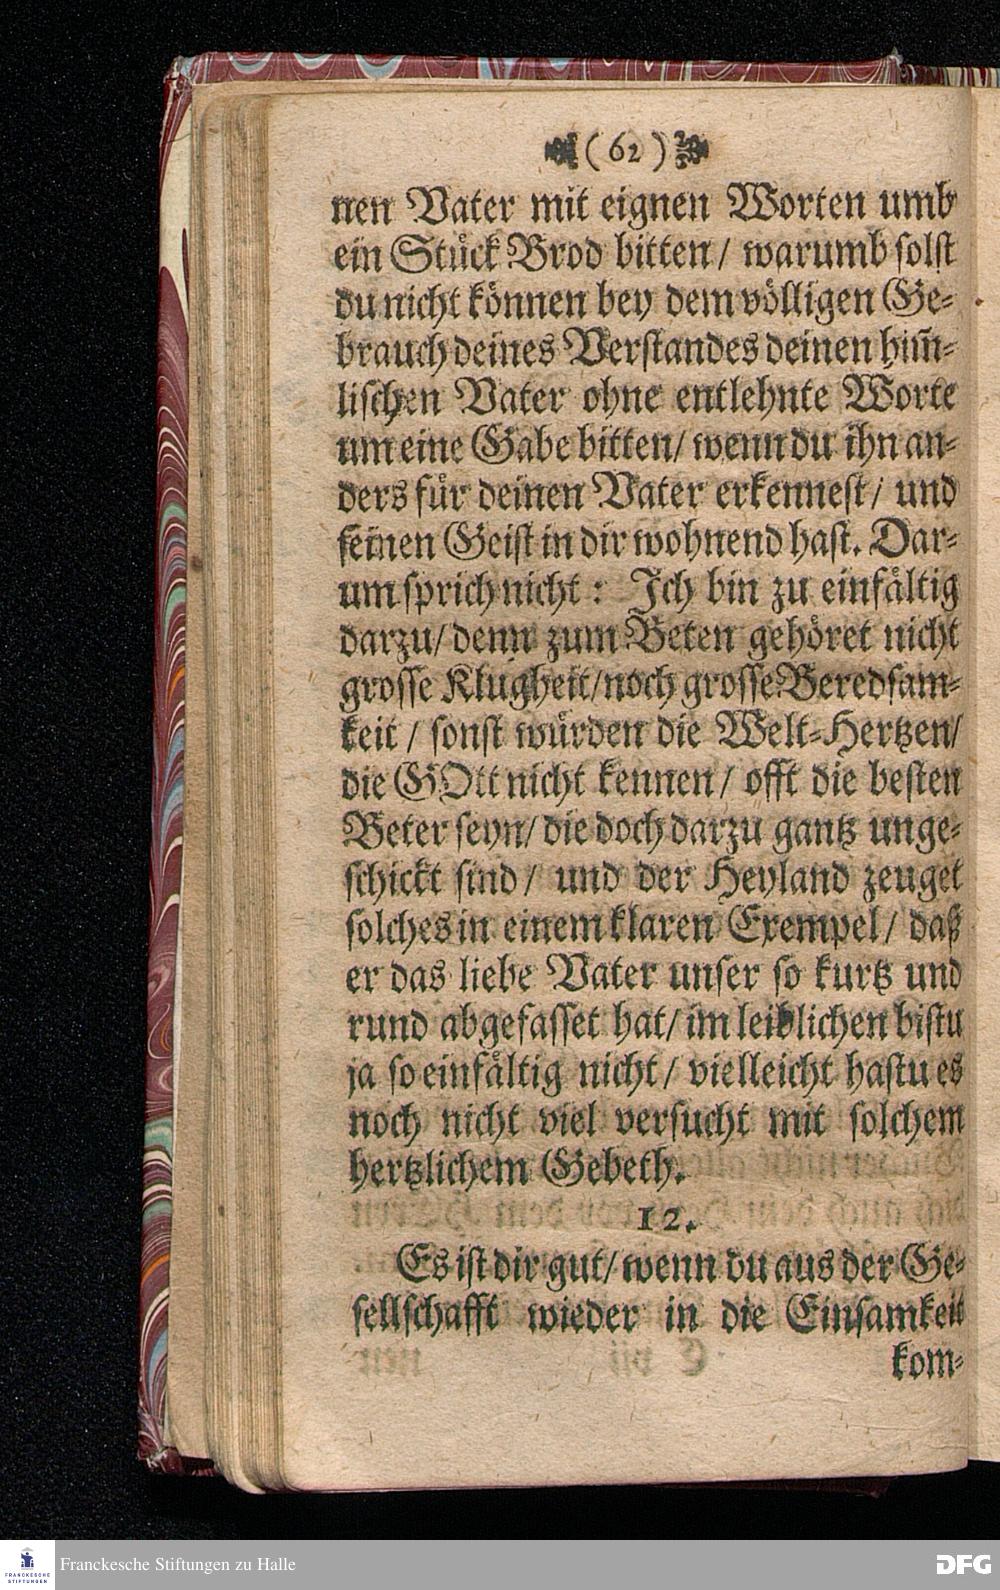 ( 62 )
nen Vater mit eignen Worten umb
ein Stück Brod bitten / warumb solst
du nicht können bey dem völligen Ge-
brauch deines Verstandes deinen him̃-
lischen Vater ohne entlehnte Worte
um eine Gabe bitten / wenn du ihn an-
ders für deinen Vater erkennest / und
seinen Geist in dir wohnend hast. Dar-
um sprich nicht : Ich bin zu einfältig
darzu / denn zum Beten gehöret nicht
grosse Klugheit / noch grosse Beredsam-
keit / sonst würden die Welt-Hertzen /
die GOtt nicht kennen / offt die besten
Beter seyn / die doch darzu gantz unge-
schickt sind / und der Heyland zeuget
solches in einem klaren Exempel / daß
er das liebe Vater unser so kurtz und
rund abgefasset hat / im leiblichen bistu
ja so einfältig nicht / vielleicht hastu es
noch nicht viel versucht mit solchem
hertzlichem Gebeth.
12.
Es ist dir gut / wenn du aus der Ge-
sellschafft wieder in die Einsamkeit
kom-
FRANCKESCHE
STIFTUNGEN
Franckesche Stiftungen zu Halle
DFG